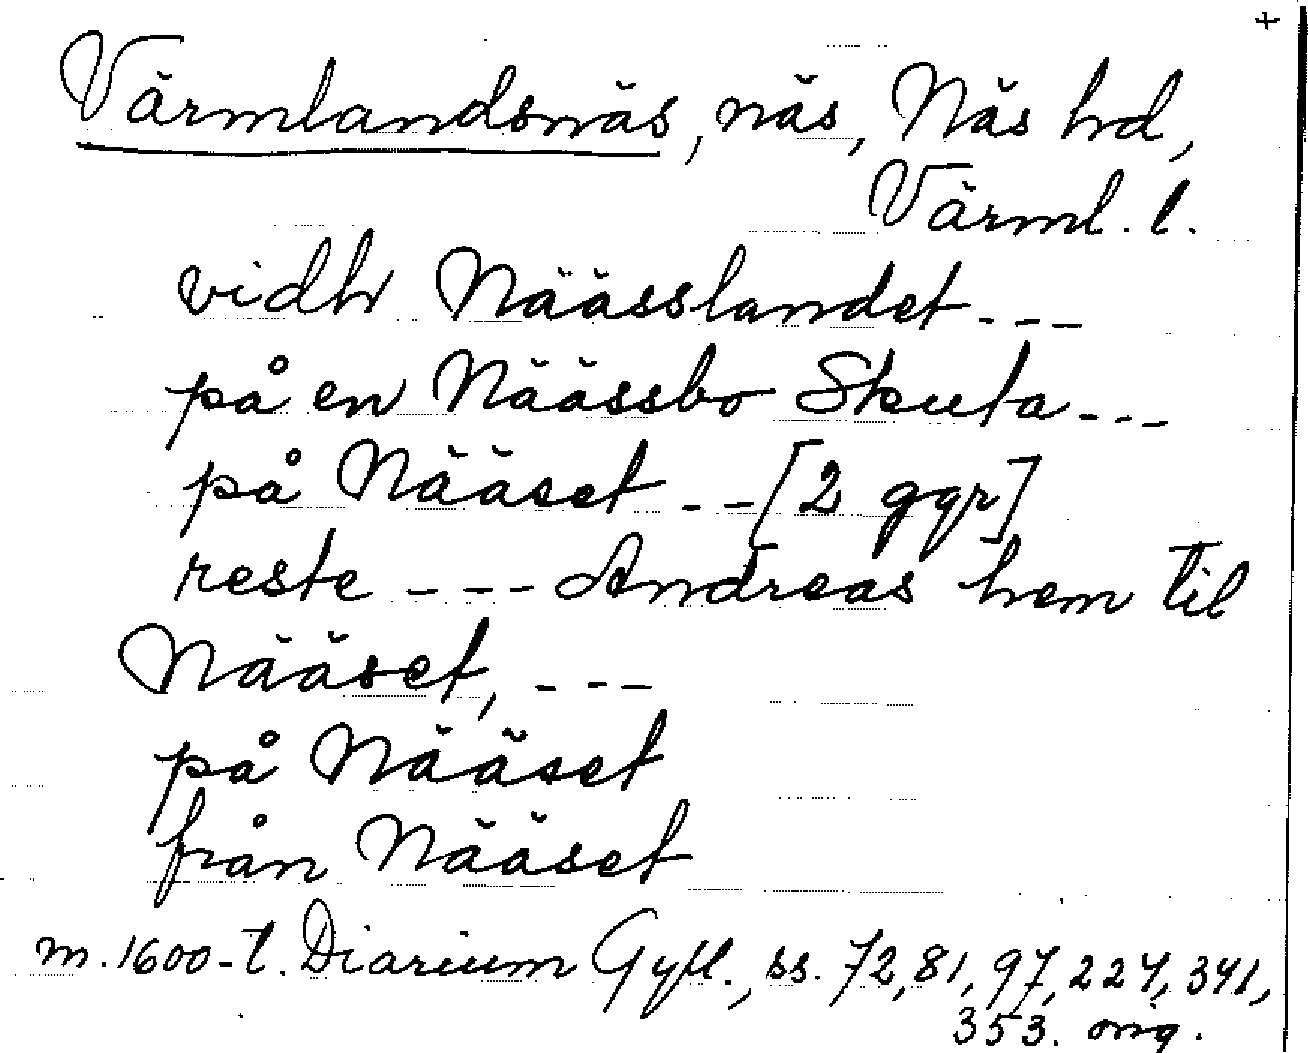 +
Värmlandsnäs, näs, Näs hd,
Värml. l.
vidh Näässlandet ---
på en Näässbo Skuta ---
på Nääset --[2 ggr]
reste --- Andreas hem til
Nääset, ---
på Nääset
från Nääset
m. 1600-t. Diarium Gyll., ss. 72, 81, 97, 227, 341,
353. orig.